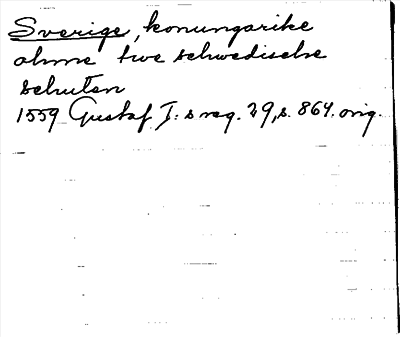 Sverige, konungarike
ahme twe schwedische
schuten
1559 Gustaf I:s reg. 29, s. 864. orig.